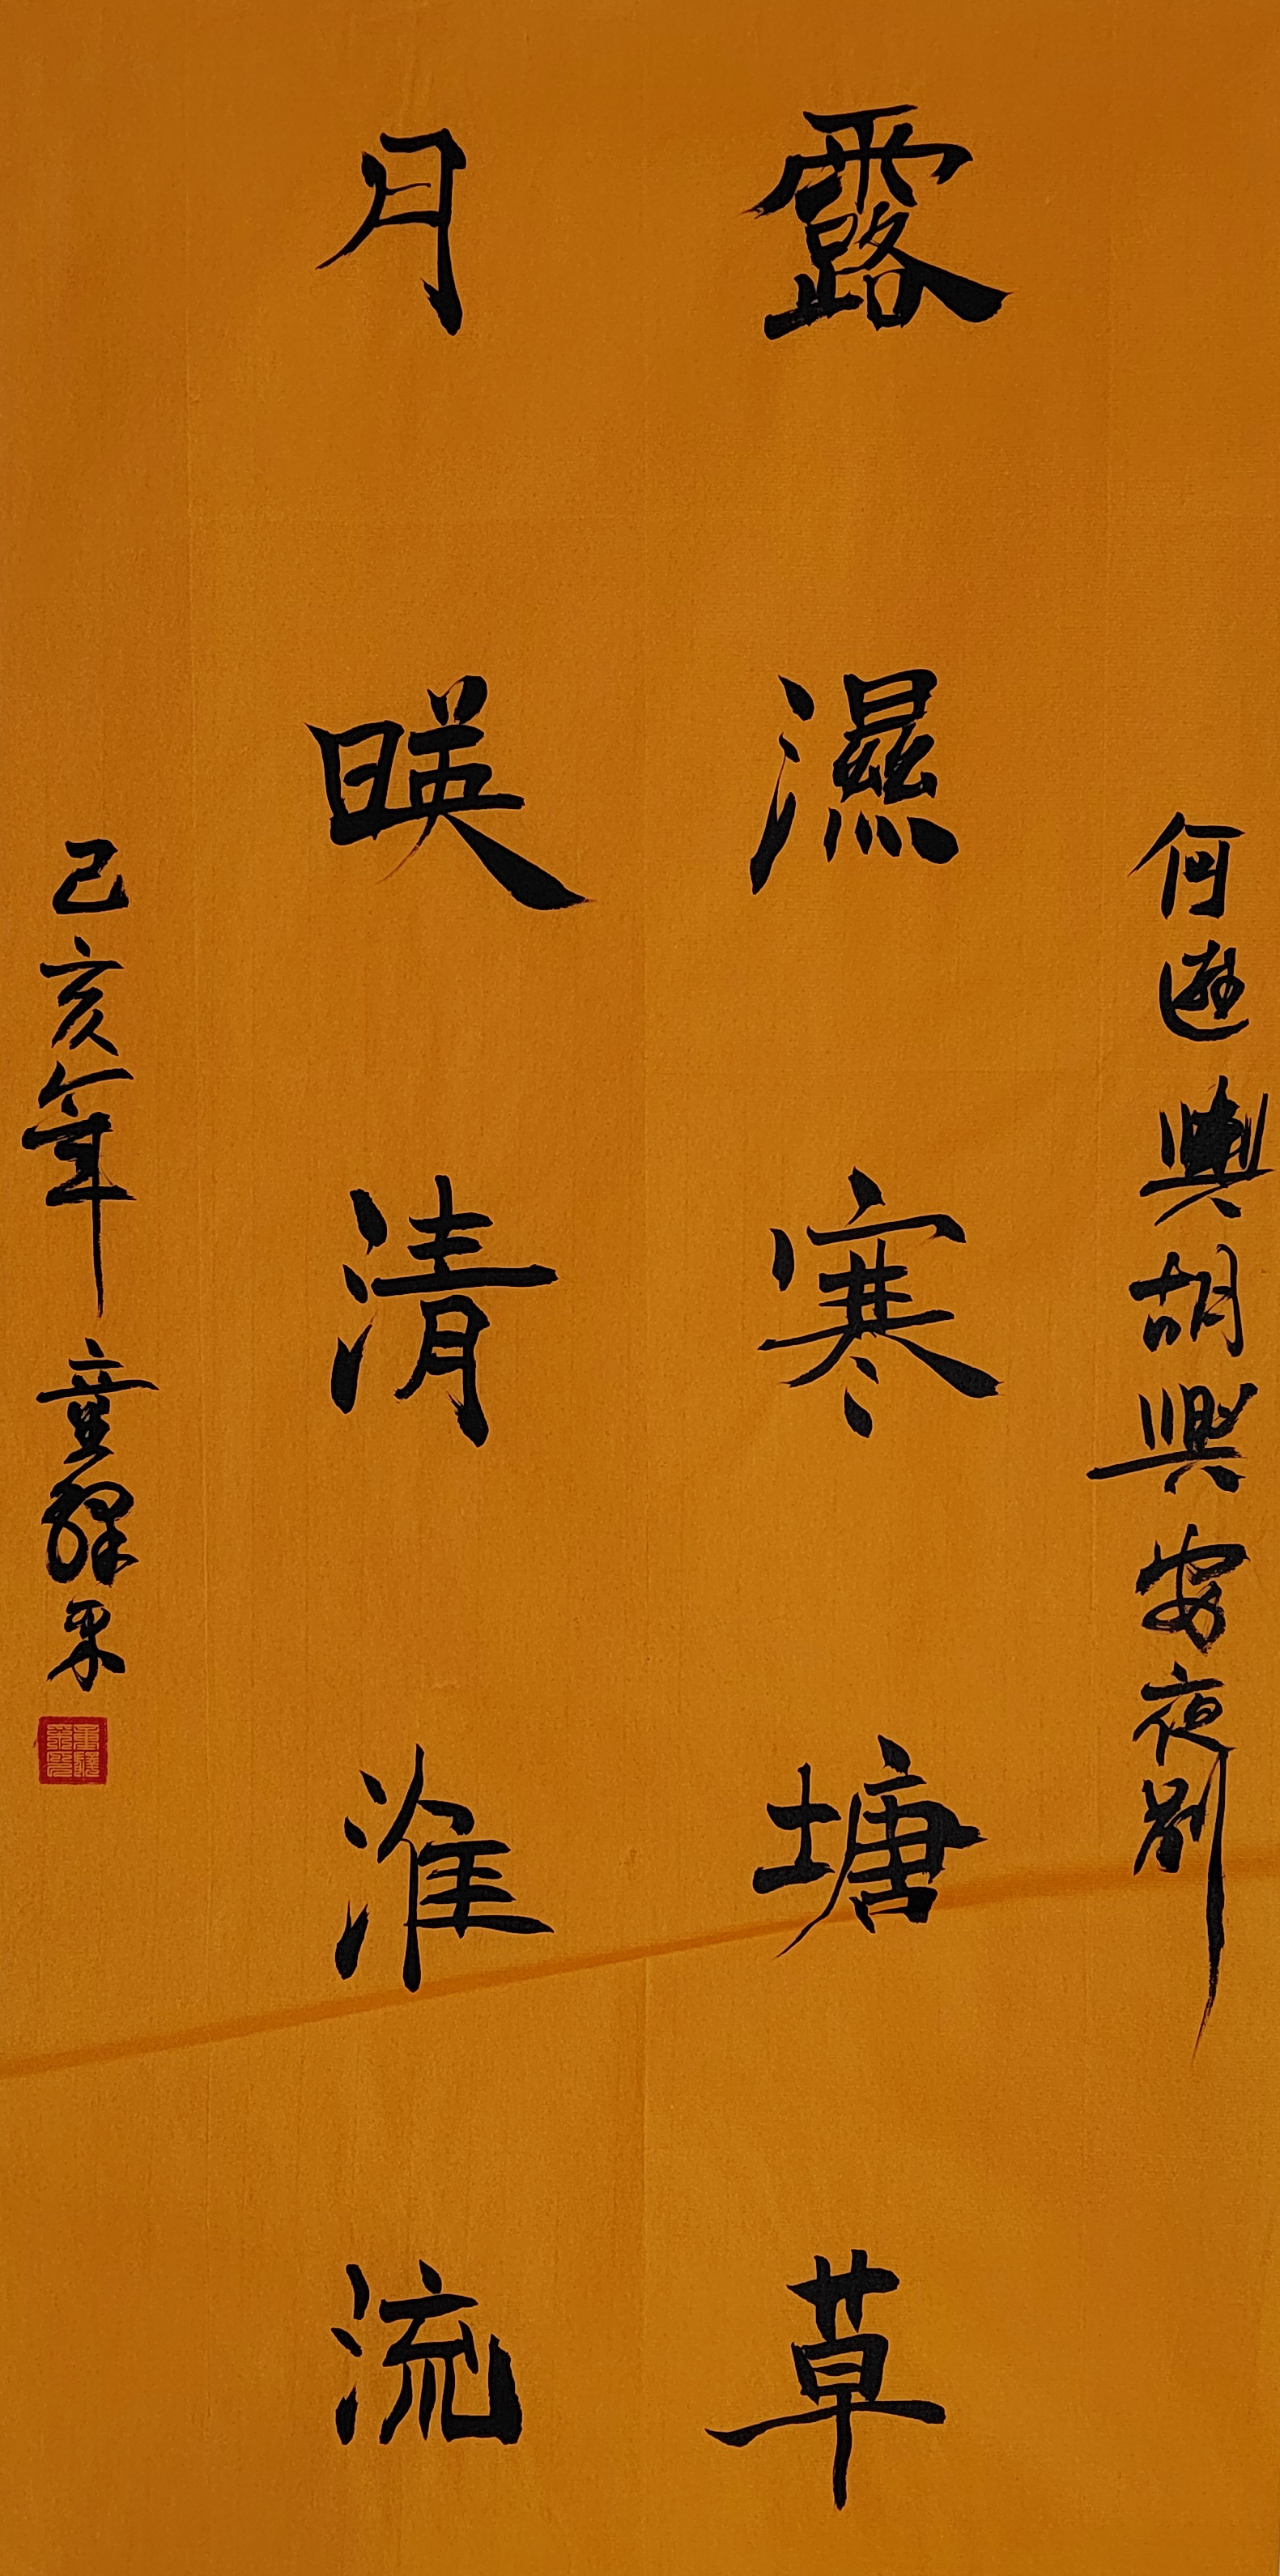 何遜與胡興安夜別
露濕寒塘草
月暎清淮流
己亥年童驛采